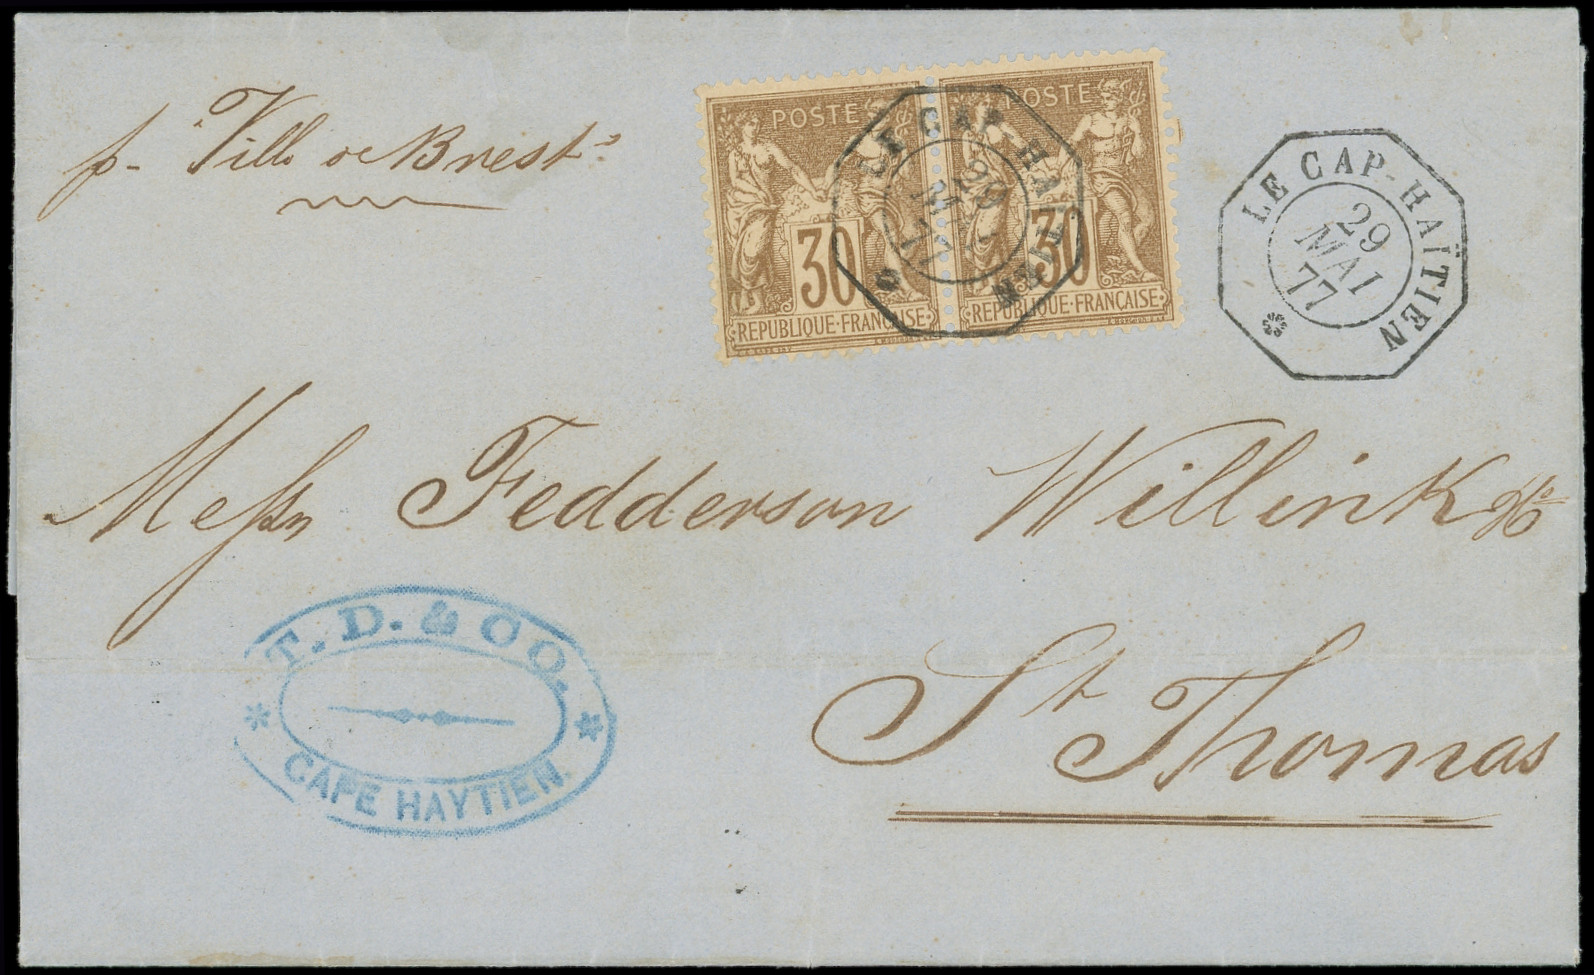 p. "Ville de Brest"
POSTE
30
REPUBLIQUE·FRANÇAISE
POSTE
30
REPUBLIQUE·FRANÇAISE
LE CAP-HAÏTIEN
29
MAI
77
LE CAP-HAÏTIEN
29
MAI
77
Messrs Fedderson Willink & Co
St Thomas
T. D. & CO.
CAPE HAYTIEN